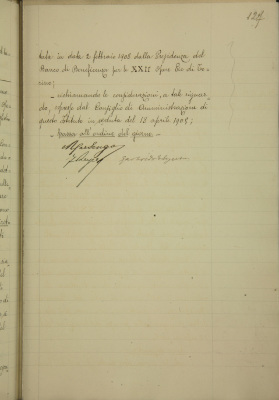 127.
tale in data 2 febbraio 1905 della Presidenza del
Banco di Beneficenza per le XXII Opere Pie di To-
rino;
– richiamando le considerazioni, a tale riguar-
do, espresse dal Consiglio di Amministrazione di
questo Istituto in seduta del 18 aprile 1905;
– passa all'ordine del giorno –